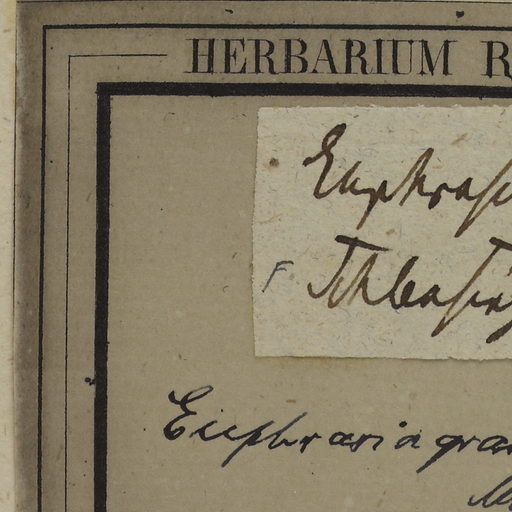 HERBARIUM R
Euphrasi
r. Schleusing
Euphrasia gra